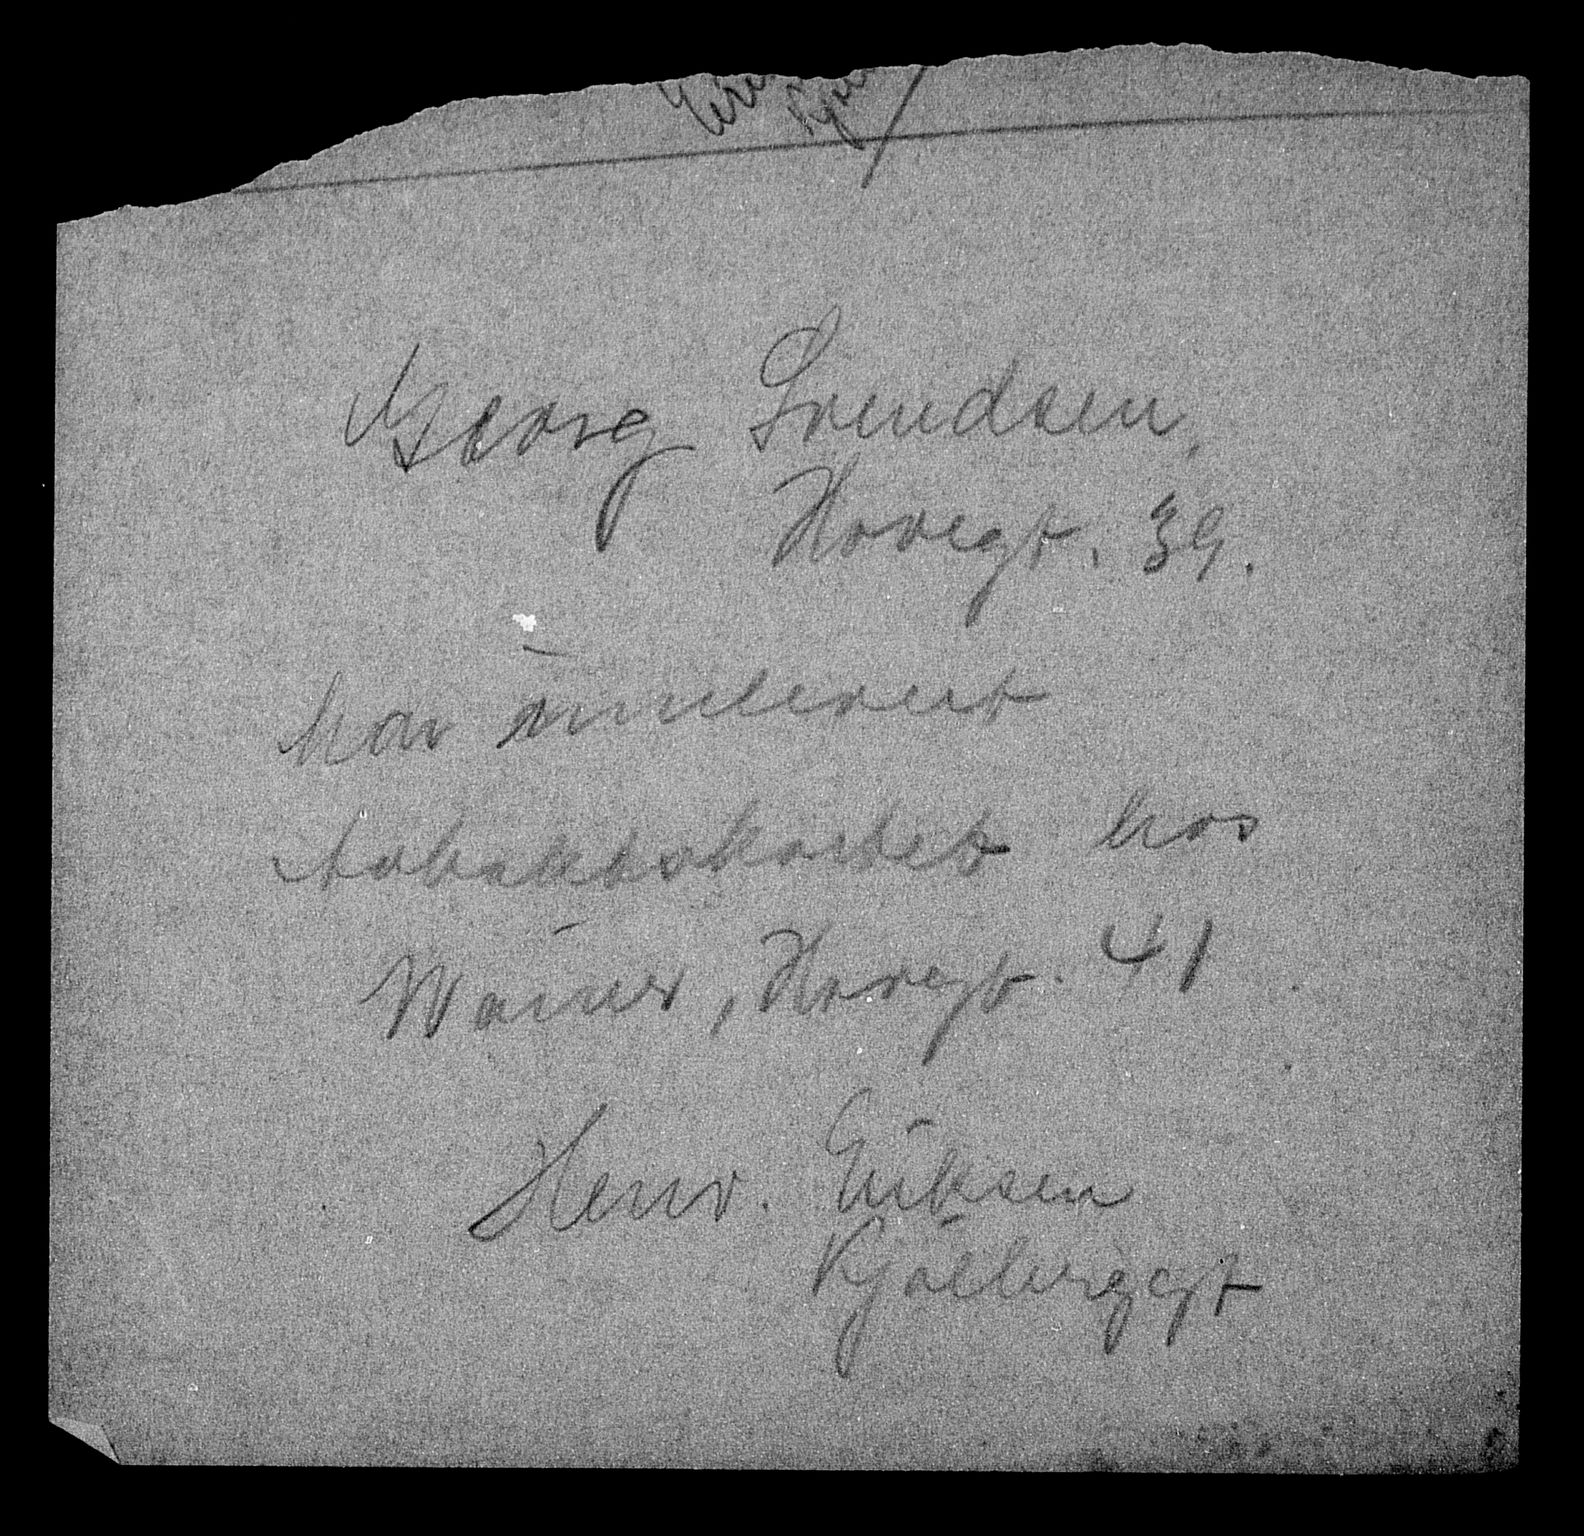 Georg Svendsen,
Hovegt. 39.
har innlevert
tobakkskortet hos
Weiner, Hovegt. 41
Henr. Eriksen
Kjølberggt